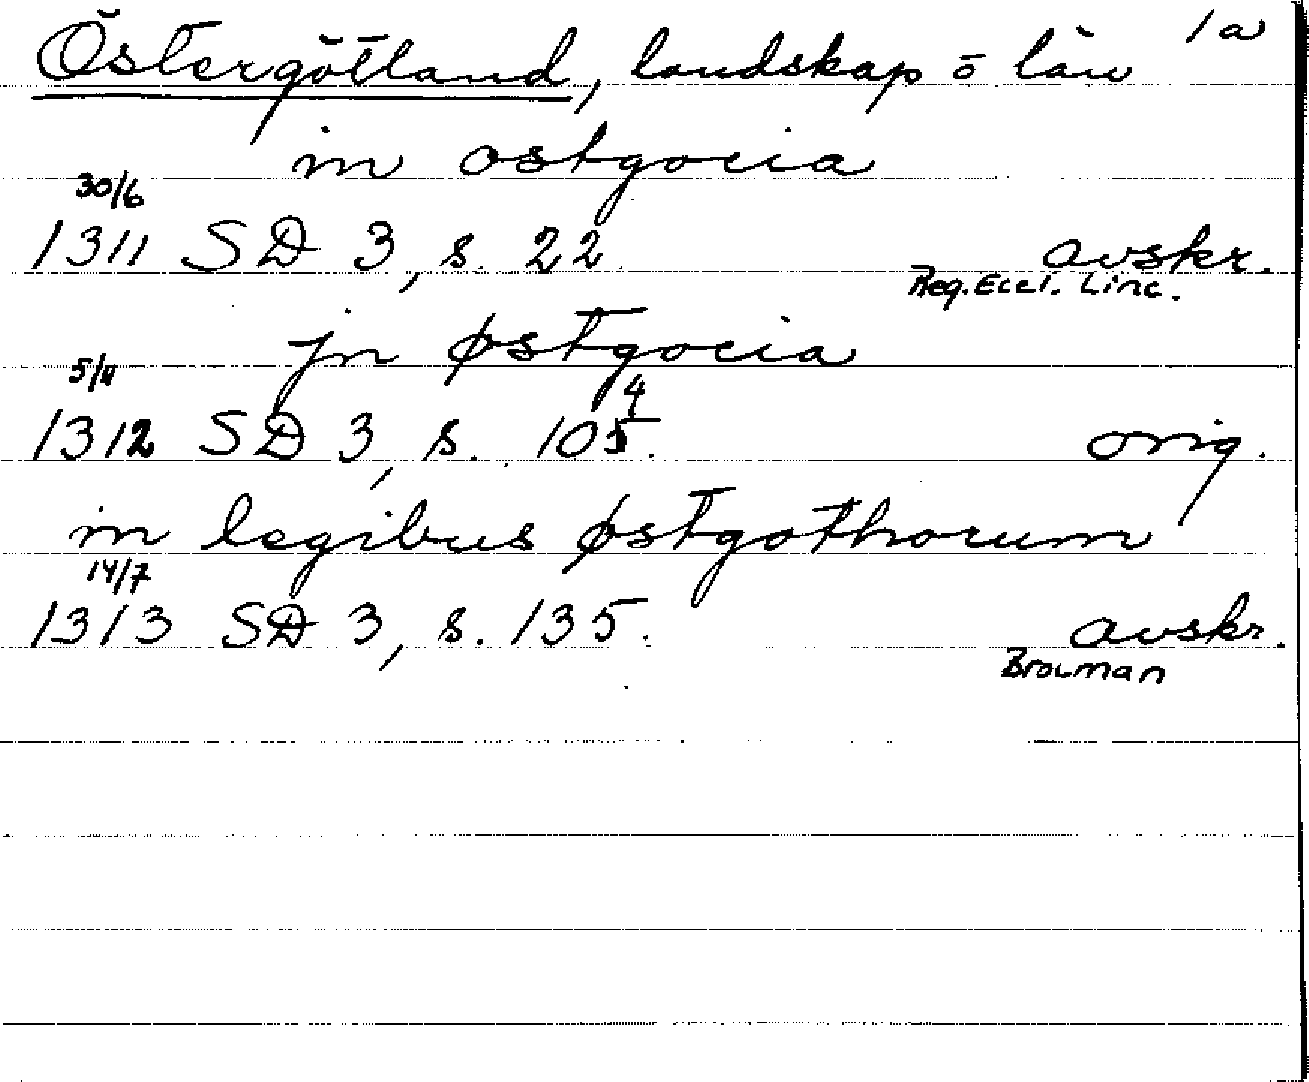 1a
Östergötland, landskap o län
in ostgocia
30/6
1311 SD 3, s. 22 avskr.
Reg. Eccl. Linc.
jn østgocia
5/11
4
1312 SD 3, s. 105. orig.
in legibus østgothorum
14/7
1313 SD 3, s. 135. avskr.
Brocman